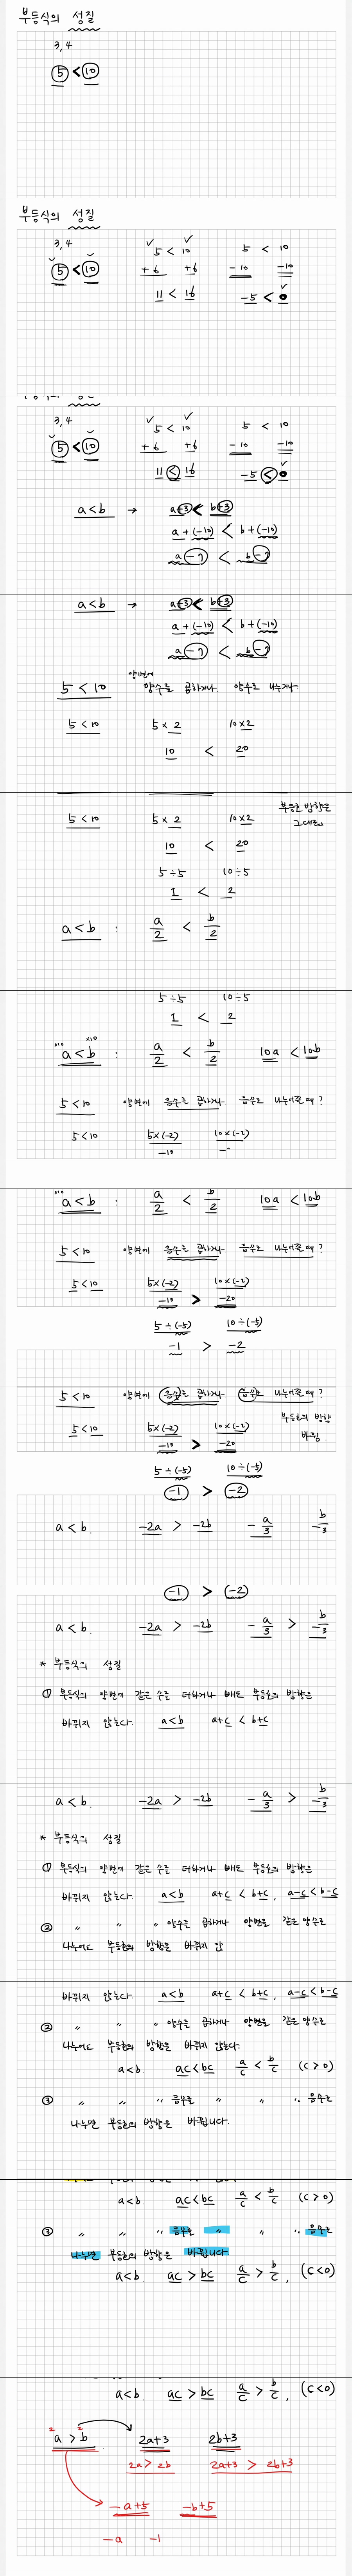 부등식의 성질
3, 4
5 < 10
부등식의 성질
3, 4
5 < 10 5 < 10 5 < 10
+6 +6 -10 -10
11 < 16 -5 < 0
3, 4
5 < 10 5 < 10 5 < 10
+6 +6 -10 -10
11 < 16 -5 < 0
a < b → a+3 < b+3
a+(-10) < b+(-10)
a-7 < b-7
a < b → a+3 < b+3
a+(-10) < b+(-10)
a-7 < b-7
양변에
5 < 10 양수를 곱하거나 양수로 나누거나
5 < 10 5×2 10×2
10 < 20
5 < 10 5×2 10×2 부등호 방향은
그대로
10 < 20
5÷5 10÷5
1 < 2
a < b : a/2 < b/2
5÷5 10÷5
1 < 2
×10 ×10
a < b : a/2 < b/2 10a < 10b
5 < 10 양변에 음수를 곱하거나 음수로 나누어줄때?
5 < 10 5×(-2) 10×(-2)
-10
×10
a < b : a/2 < b/2 10a < 10b
5 < 10 양변에 음수를 곱하거나 음수로 나누어줄때?
5 < 10 5×(-2) 10×(-2)
-10 > -20
5÷(-5) 10÷(-5)
-1 > -2
5 < 10 양변에 음수를 곱하거나 음수로 나누어줄때?
5 < 10 5×(-2) 10×(-2) 부등호의 방향
바뀜.
-10 > -20
5÷(-5) 10÷(-5)
-1 > -2
a < b. -2a > -2b -a/3 b/-3
-1 > -2
a < b. -2a > -2b -a/3 > b/-3
* 부등식의 성질
① 부등식의 양변에 같은 수를 더하거나 빼도 부등호의 방향은
바뀌지 않는다. a<b a+c < b+c
a < b. -2a > -2b -a/3 > b/-3
* 부등식의 성질
① 부등식의 양변에 같은 수를 더하거나 빼도 부등호의 방향은
바뀌지 않는다. a<b a+c < b+c, a-c < b-c
② 〃 〃 〃 양수를 곱하거나 양변을 같은 양수로
나누어도 부등호의 방향은 바뀌지 않
바뀌지 않는다. a<b a+c < b+c, a-c < b-c
② 〃 〃 〃 양수를 곱하거나 양변을 같은 양수로
나누어도 부등호의 방향은 바뀌지 않는다.
a<b. ac<bc a/c < b/c (c>0)
③ 〃 〃 〃 음수로 〃 〃 〃 음수로
나누면 부등호의 방향은 바뀝니다.
a<b. ac<bc a/c < b/c (c>0)
③ 〃 〃 〃 음수로 〃 〃 〃 음수로
나누면 부등호의 방향은 바뀝니다
a<b. ac > bc a/c > b/c, (c<0)
a<b. ac > bc a/c > b/c, (c<0)
2 2
a > b 2a+3 2b+3
2a > 2b 2a+3 > 2b+3
-a+5 -b+5
-a -1